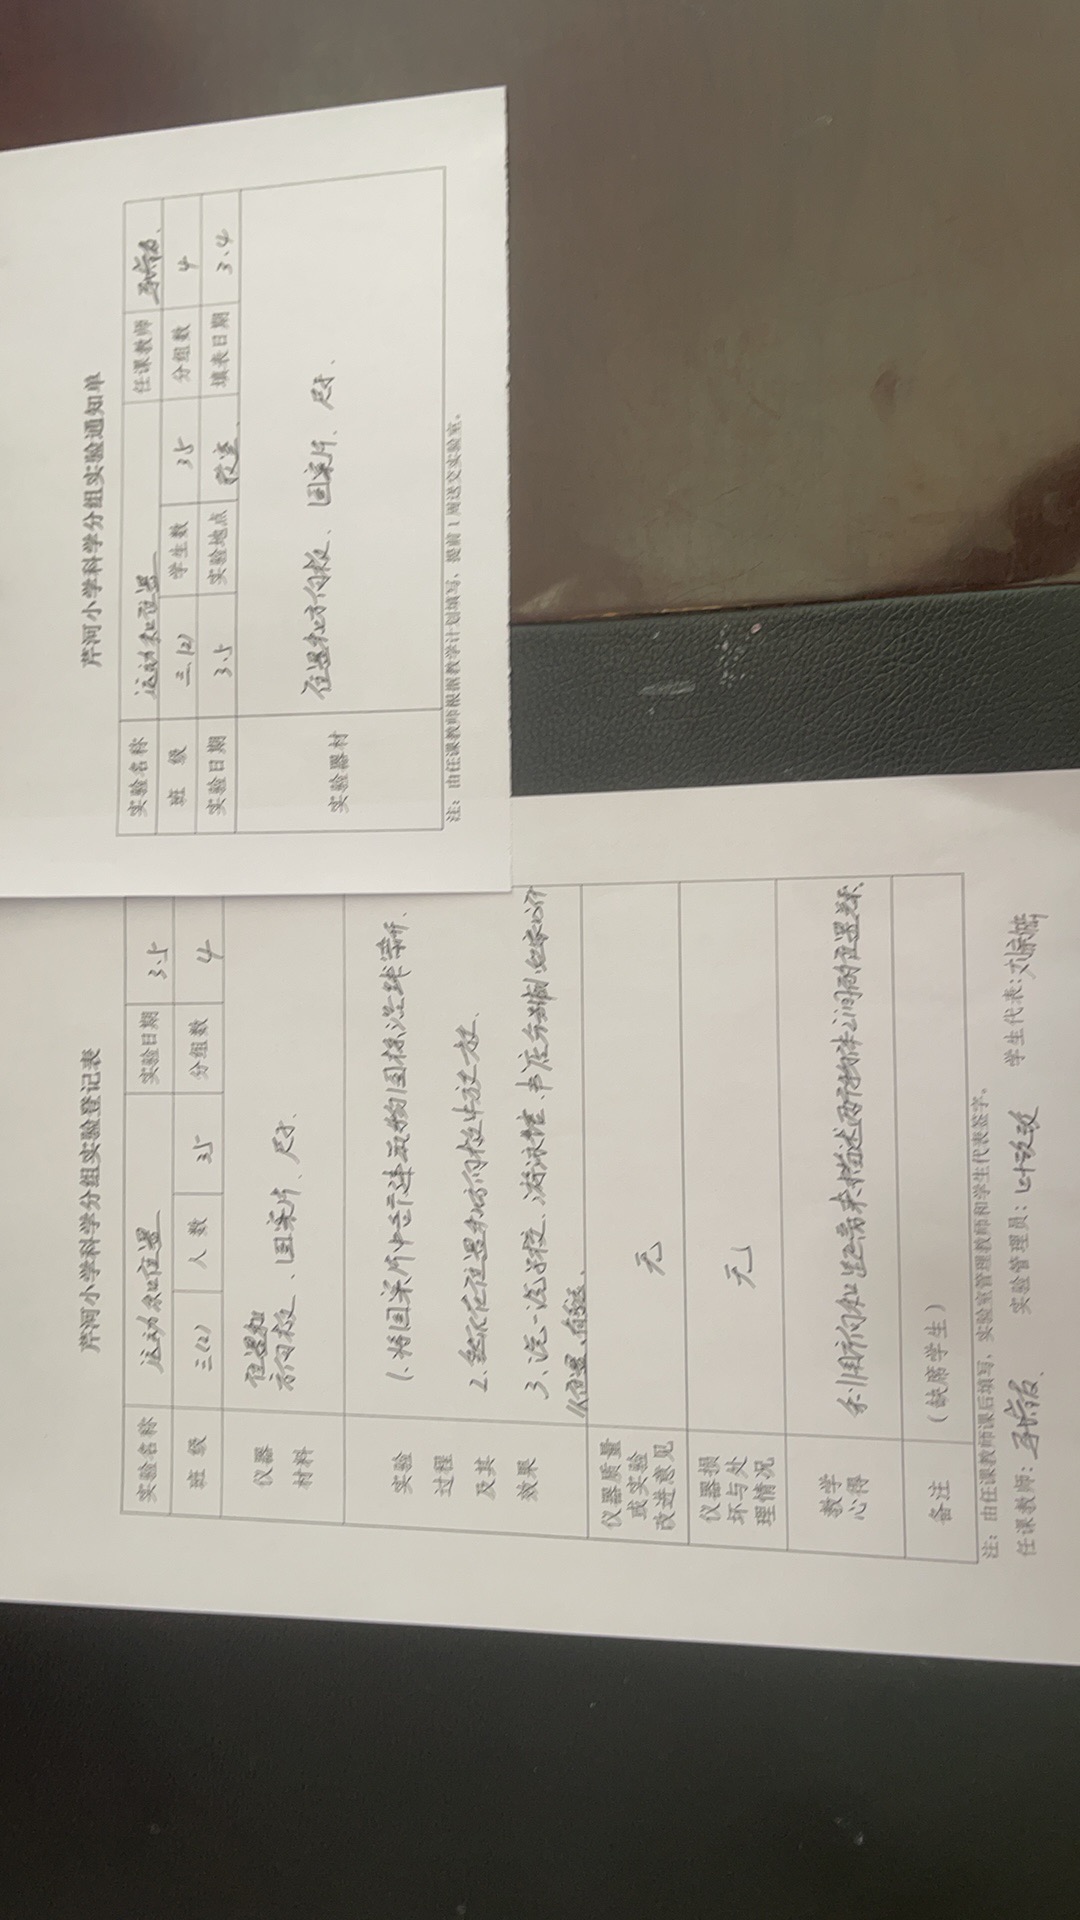 芹河小学科学分组实验通知单
实验名称 运动和位置 任课教师
班 级 三(2) 学生数 35 分组数 4
实验日期 3.5 实验地点 教室 填表日期 3.4
实验器材 位置和方向板、图案片、尺子、
注：由任课教师根据教学计划填写，提前1周送交实验室。
芹河小学科学分组实验登记表
实验名称 运动和位置 实验日期 3.5
班 级 三(2) 人 数 35 分组数 4
仪器材料 位置和方向板、图案片、尺子、
实验过程及其效果
1、将图案片中
2、
3、说一说学校、游泳馆、书店分别
仪器质量或实验改进意见 无
仪器损坏与处理情况 无
教学心得 利用方向和距离来描述两个物体之间的位置关系、
备注 （缺席学生）
注：由任课教师课后填写，实验室管理教师和学生代表签字。
任课教师： 实验管理员：叶 学生代表：刘